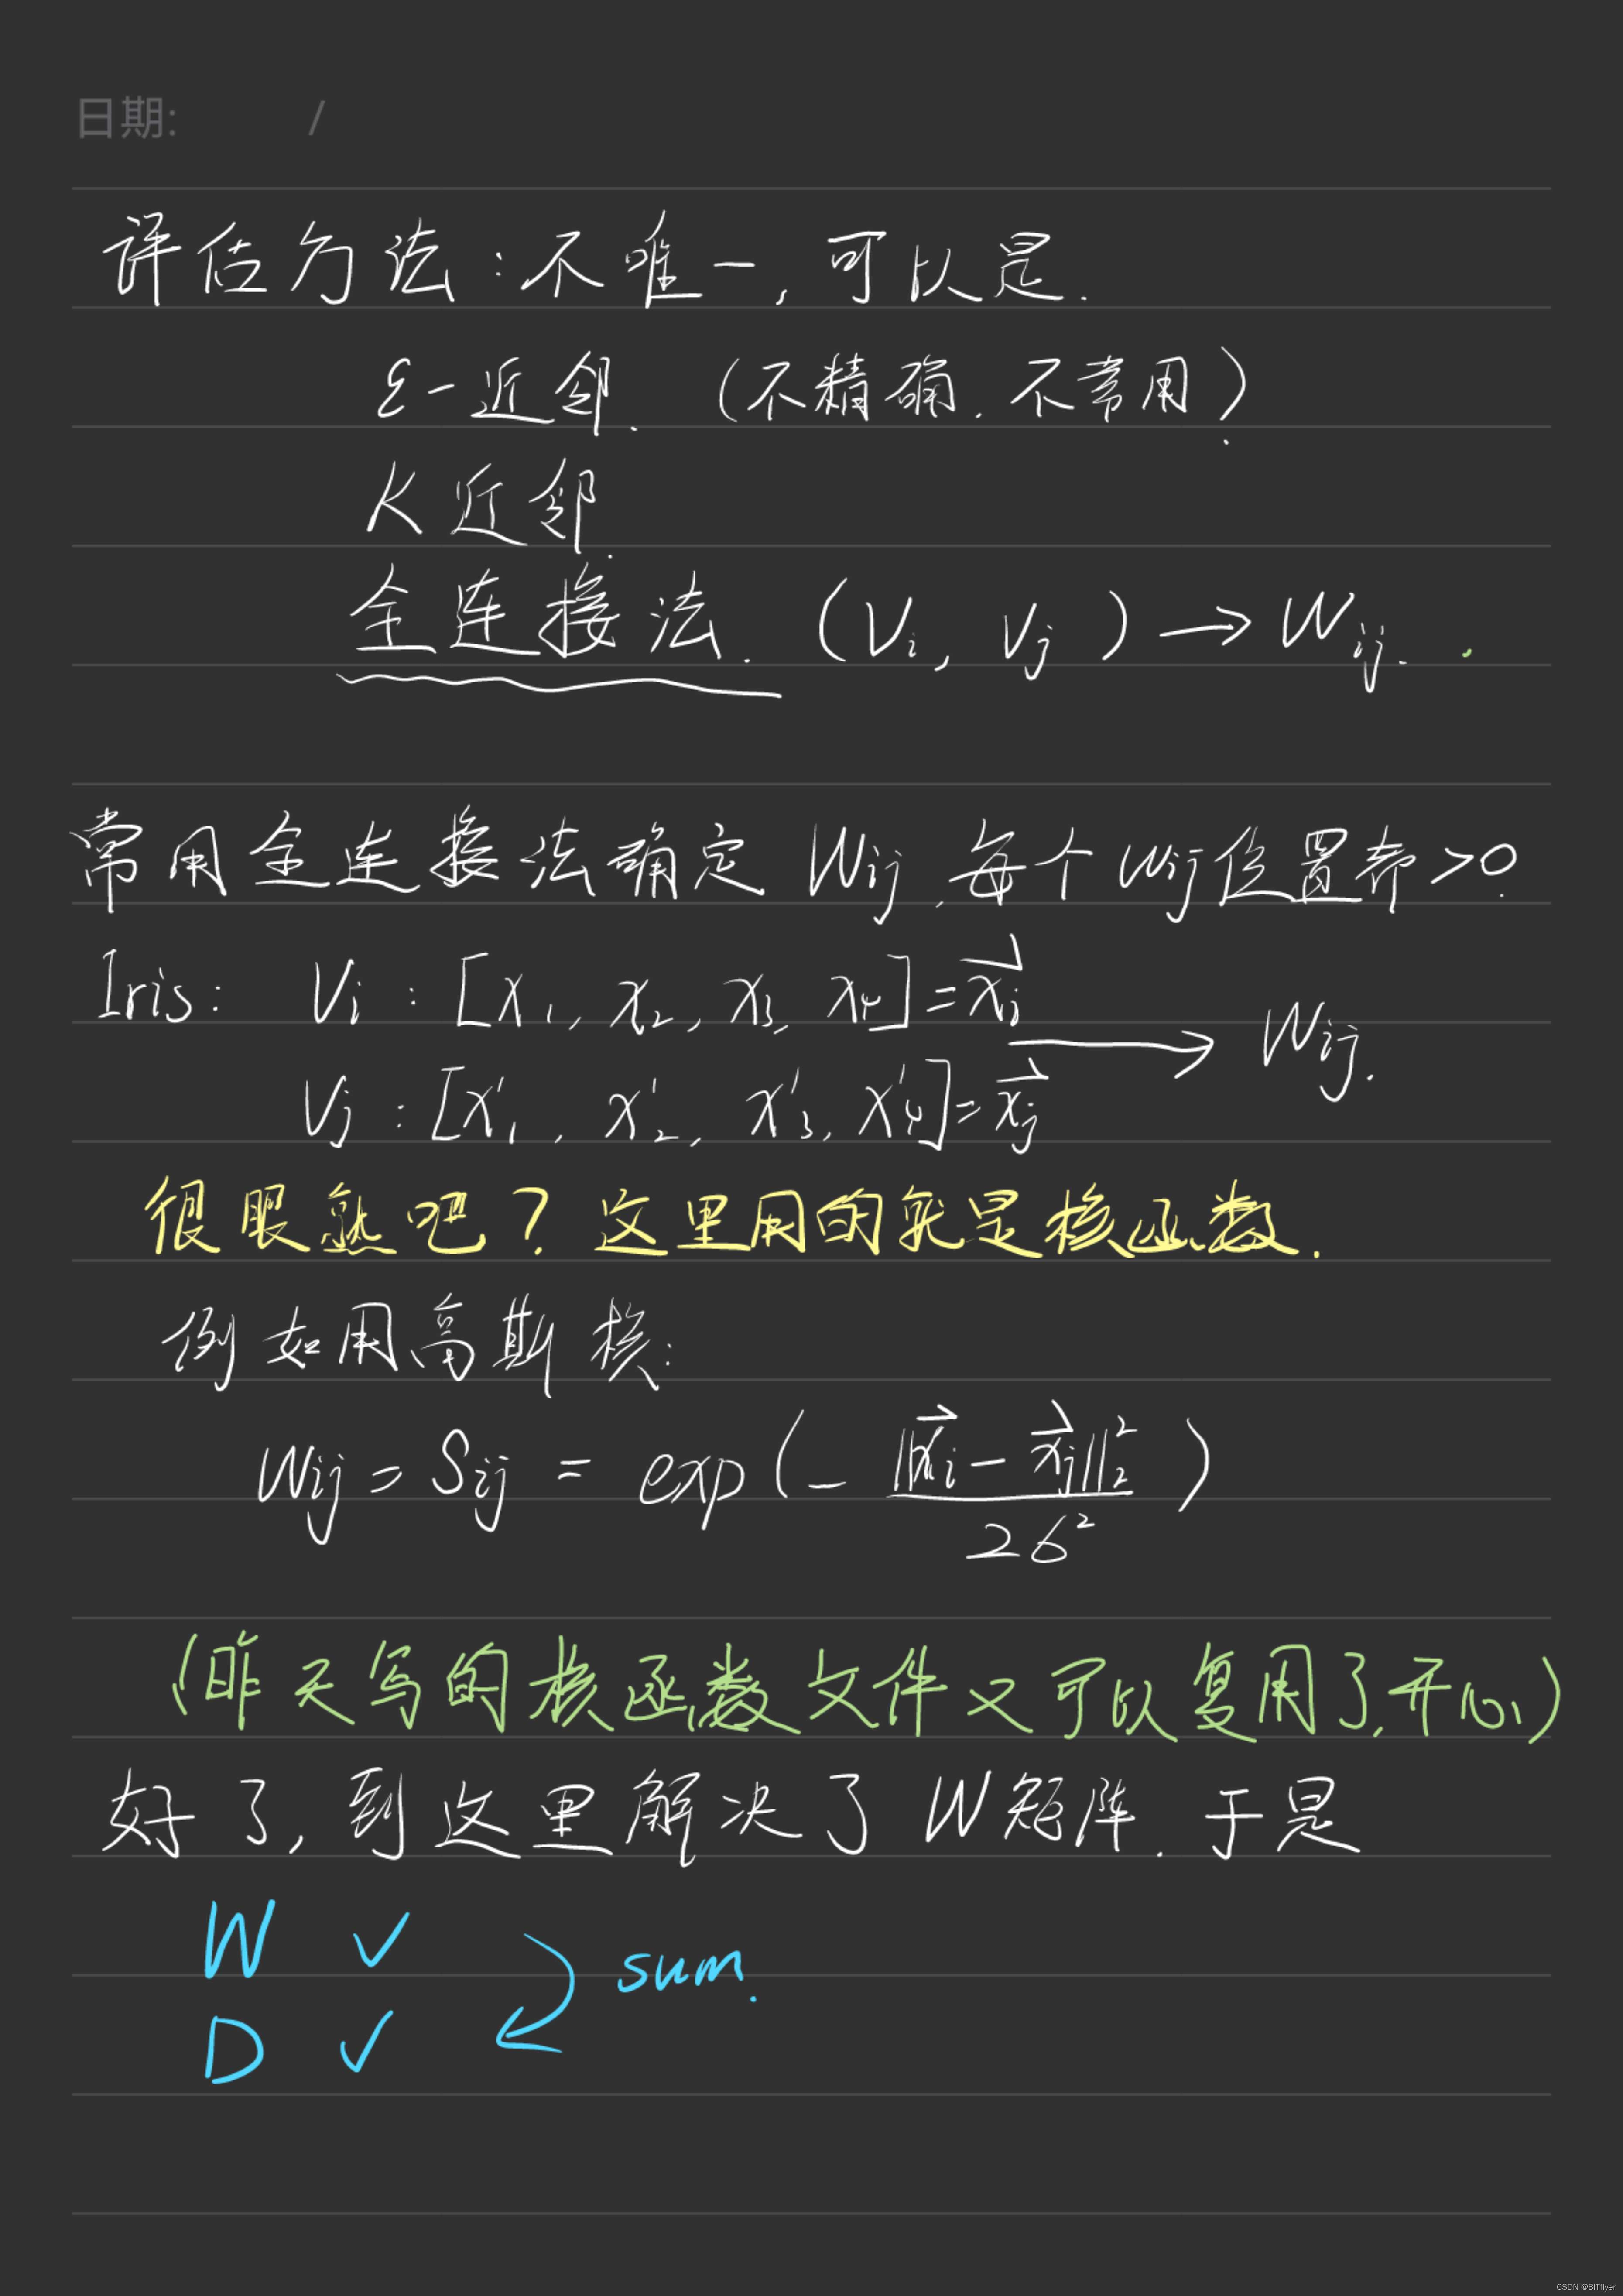 日期: /
评估方法:不唯一,可以是.
ε-近邻.(不精确.不常用).
K近邻.
全连接法. (Vi, Vj) → Wij.
常用全连接法确定Wij,每个Wij位置都>0.
Iris: Vi : [x1, x2, x3, x4] = x⃗i
→ Wij.
Vj : [x'1, x'2, x'3, x'4] = x⃗j
很眼熟吧?这里用的就是核函数.
例如用高斯核:
Wij = Sij = exp(- ||x⃗i - x⃗j||₂² / 2σ²)
(昨天写的核函数文件又可以复用了,开心)
好了,到这里解决了W矩阵.于是
W ✓
sum.
D ✓
CSDN @BITflyer